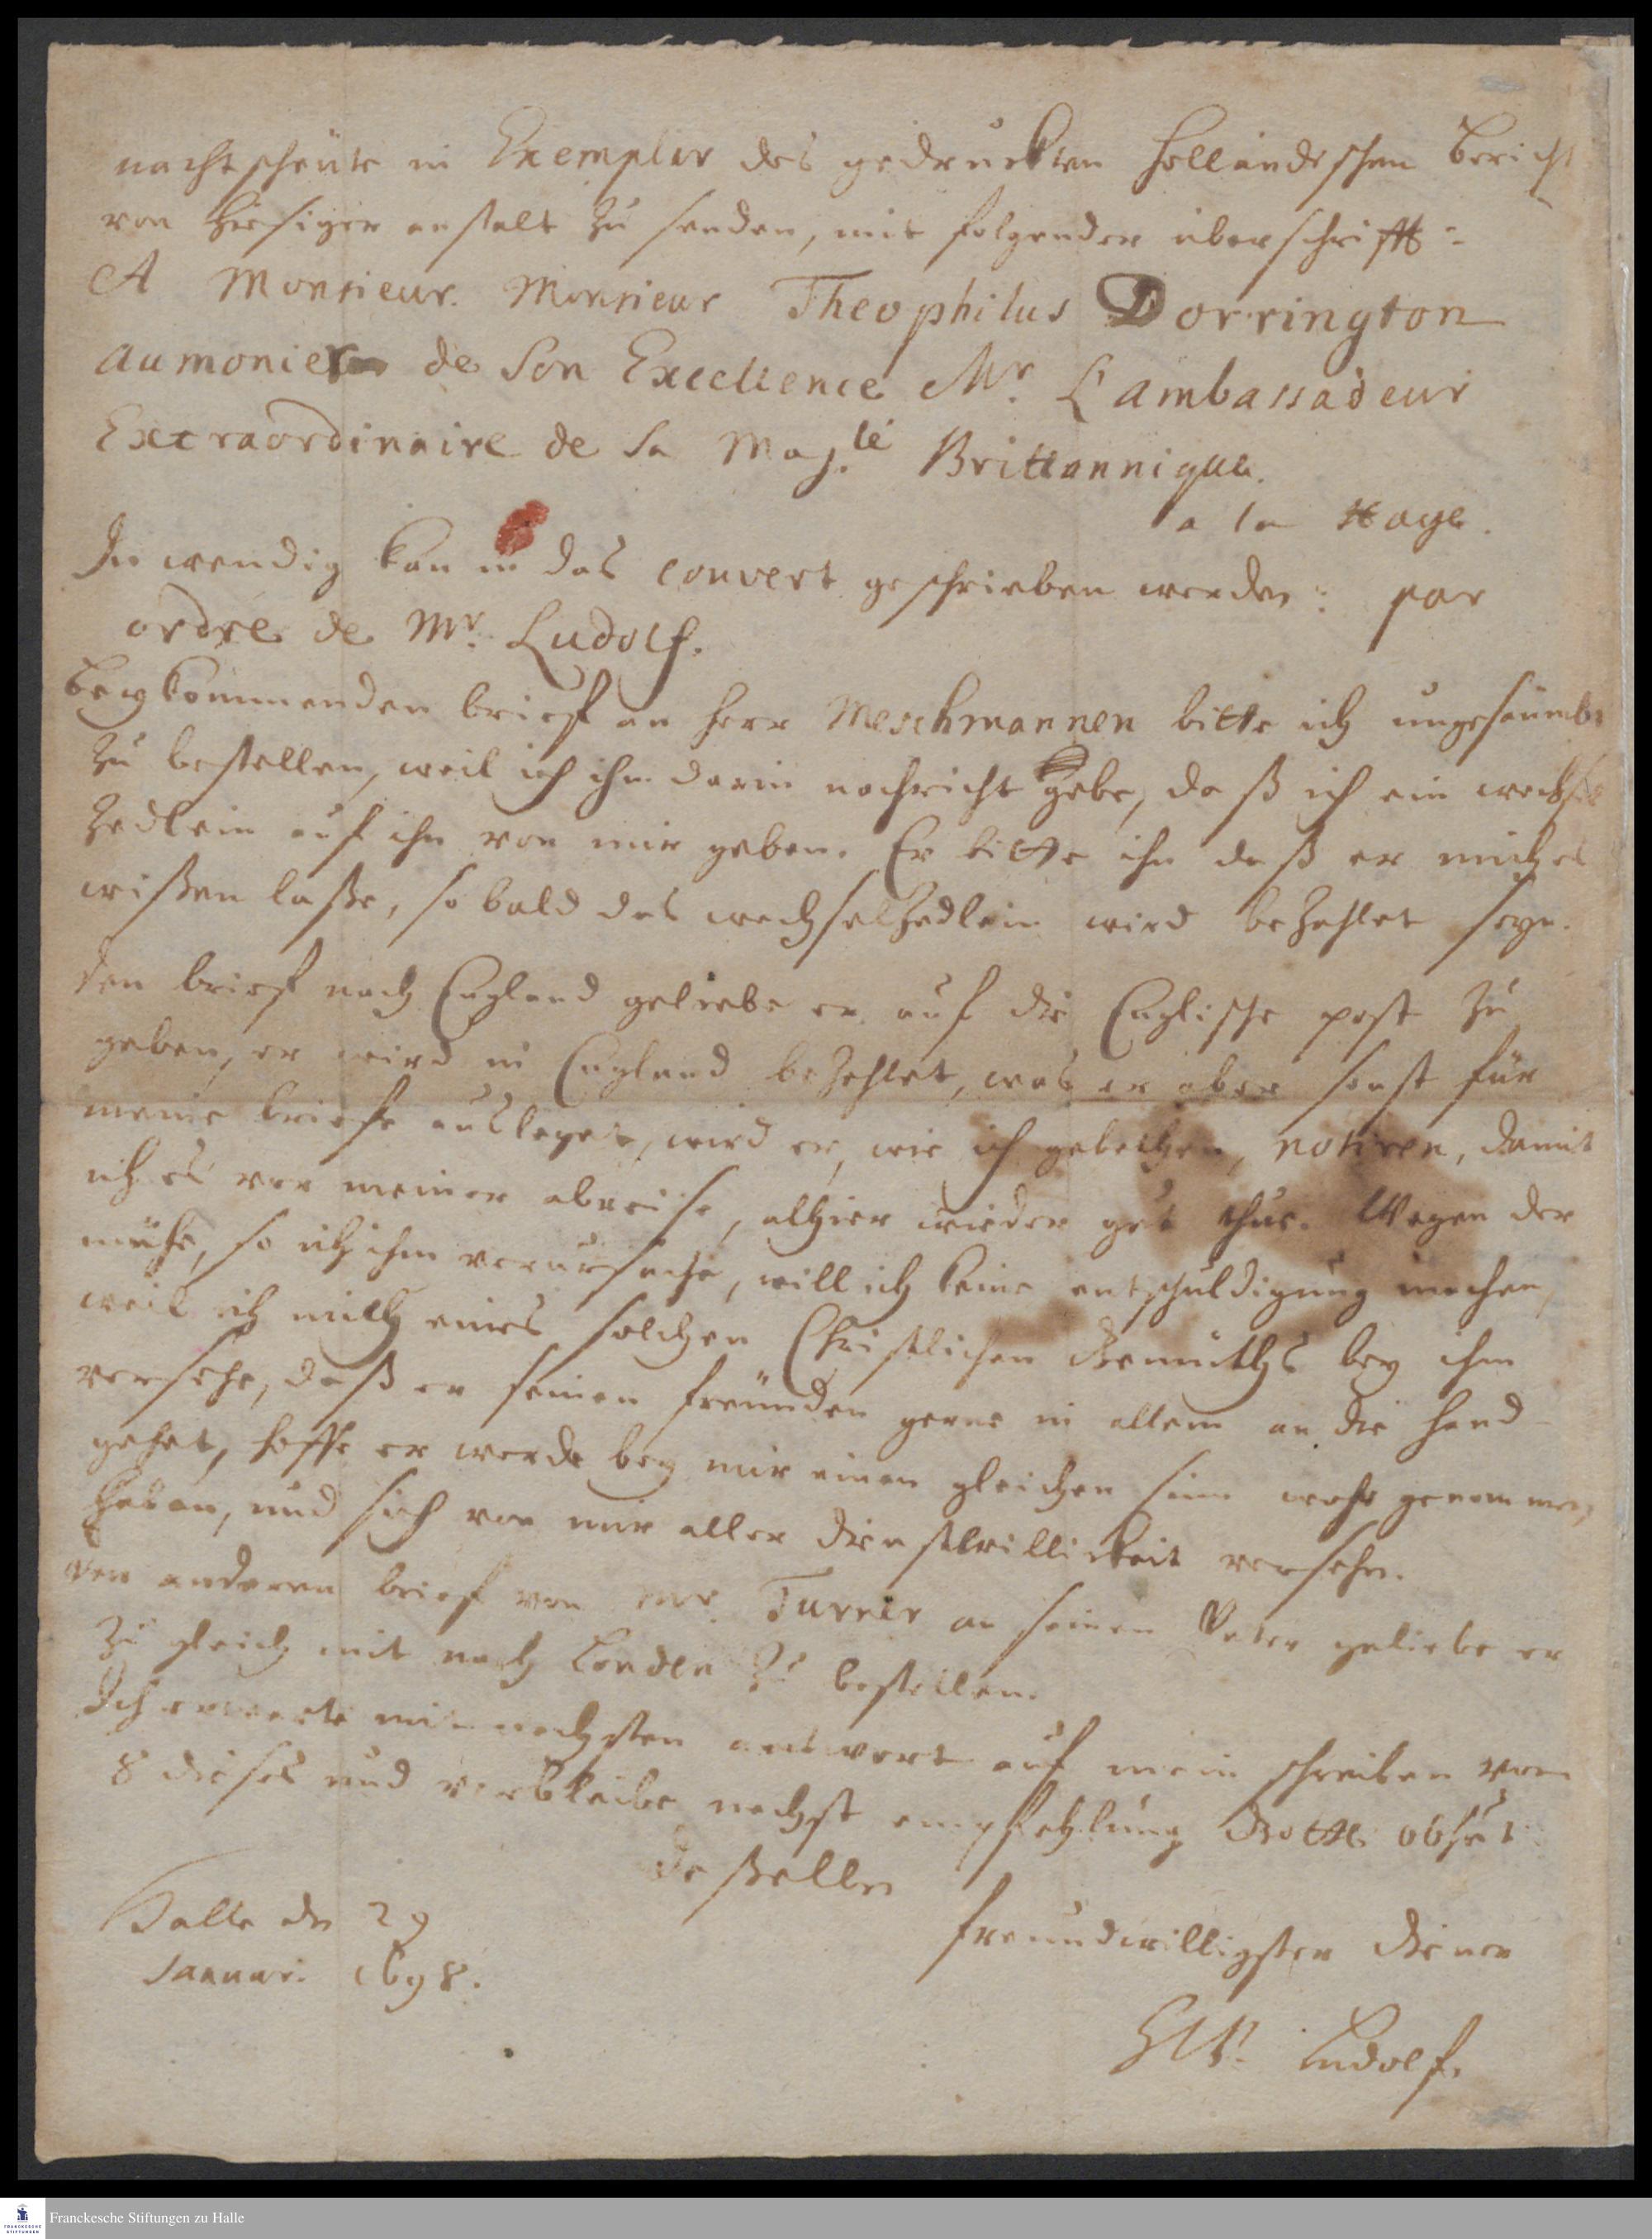 nachtsheute in Exemplar des gedruckten Holländischen Bericht
von hiesiger anstalt zu senden, mit folgender überschrifft:
A Monsieur. Monsieur Theophilus Dorrington
aumonier de Son Excellence Mr. L'ambassadeur
Extraordinaire de Sa Maj.té Brittannique.
a la Haye.
In wendig kan in das couvert geschrieben werden: par
ordre de Mr. Ludolf.
beykommenden brief an Herr Meschmannen bitte ich ungesäumbt
zu bestellen, weil ich ihm darin nachricht gebe, daß ich ein wechsel
zedlein auf ihn von mir geben. Er bitte ihn daß er mich es
wißen laße, so bald das wechselzedlein wird bezahlet seyn.
den brief nach England geliebe er auf die Englische post zu
geben, er wird in England bezahlet, was er aber sonst für
meine briefe ausleget, wird er, wie ich gebethen, notiren, damit
ich es vor meiner abreise, alhier wieder gut thue. Wegen der
mühe, so ich ihm verursache, will ich keine entschuldigung machen,
weil ich mich eines solchen Christlichen Gemüths bey ihm
versehe, daß er seinen freünden gerne in allem an die hand
gehet, hoffe er werde bey mir einen gleichen sinn wahr genommen
haben, und sich von mir aller dienstwilligkeit versehn.
den anderen brief von mr. Turner an seinen Vater geliebe er
zu gleich mit nach London zu bestellen.
Ich erwarte mit nechsten antwort auf mein schreiben vom
8 dieses und verbleibe nechst empfehlung Gottl. obhut
deßelben
Halle den 29
Januar. 1698.
freundwilligster diener
HW. Ludolf.
Franckesche Stiftungen zu Halle
FRANCKESCHE
STIFTUNGEN